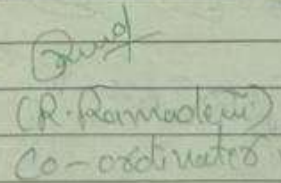 (R. Ramadevi)
Co-ordinator